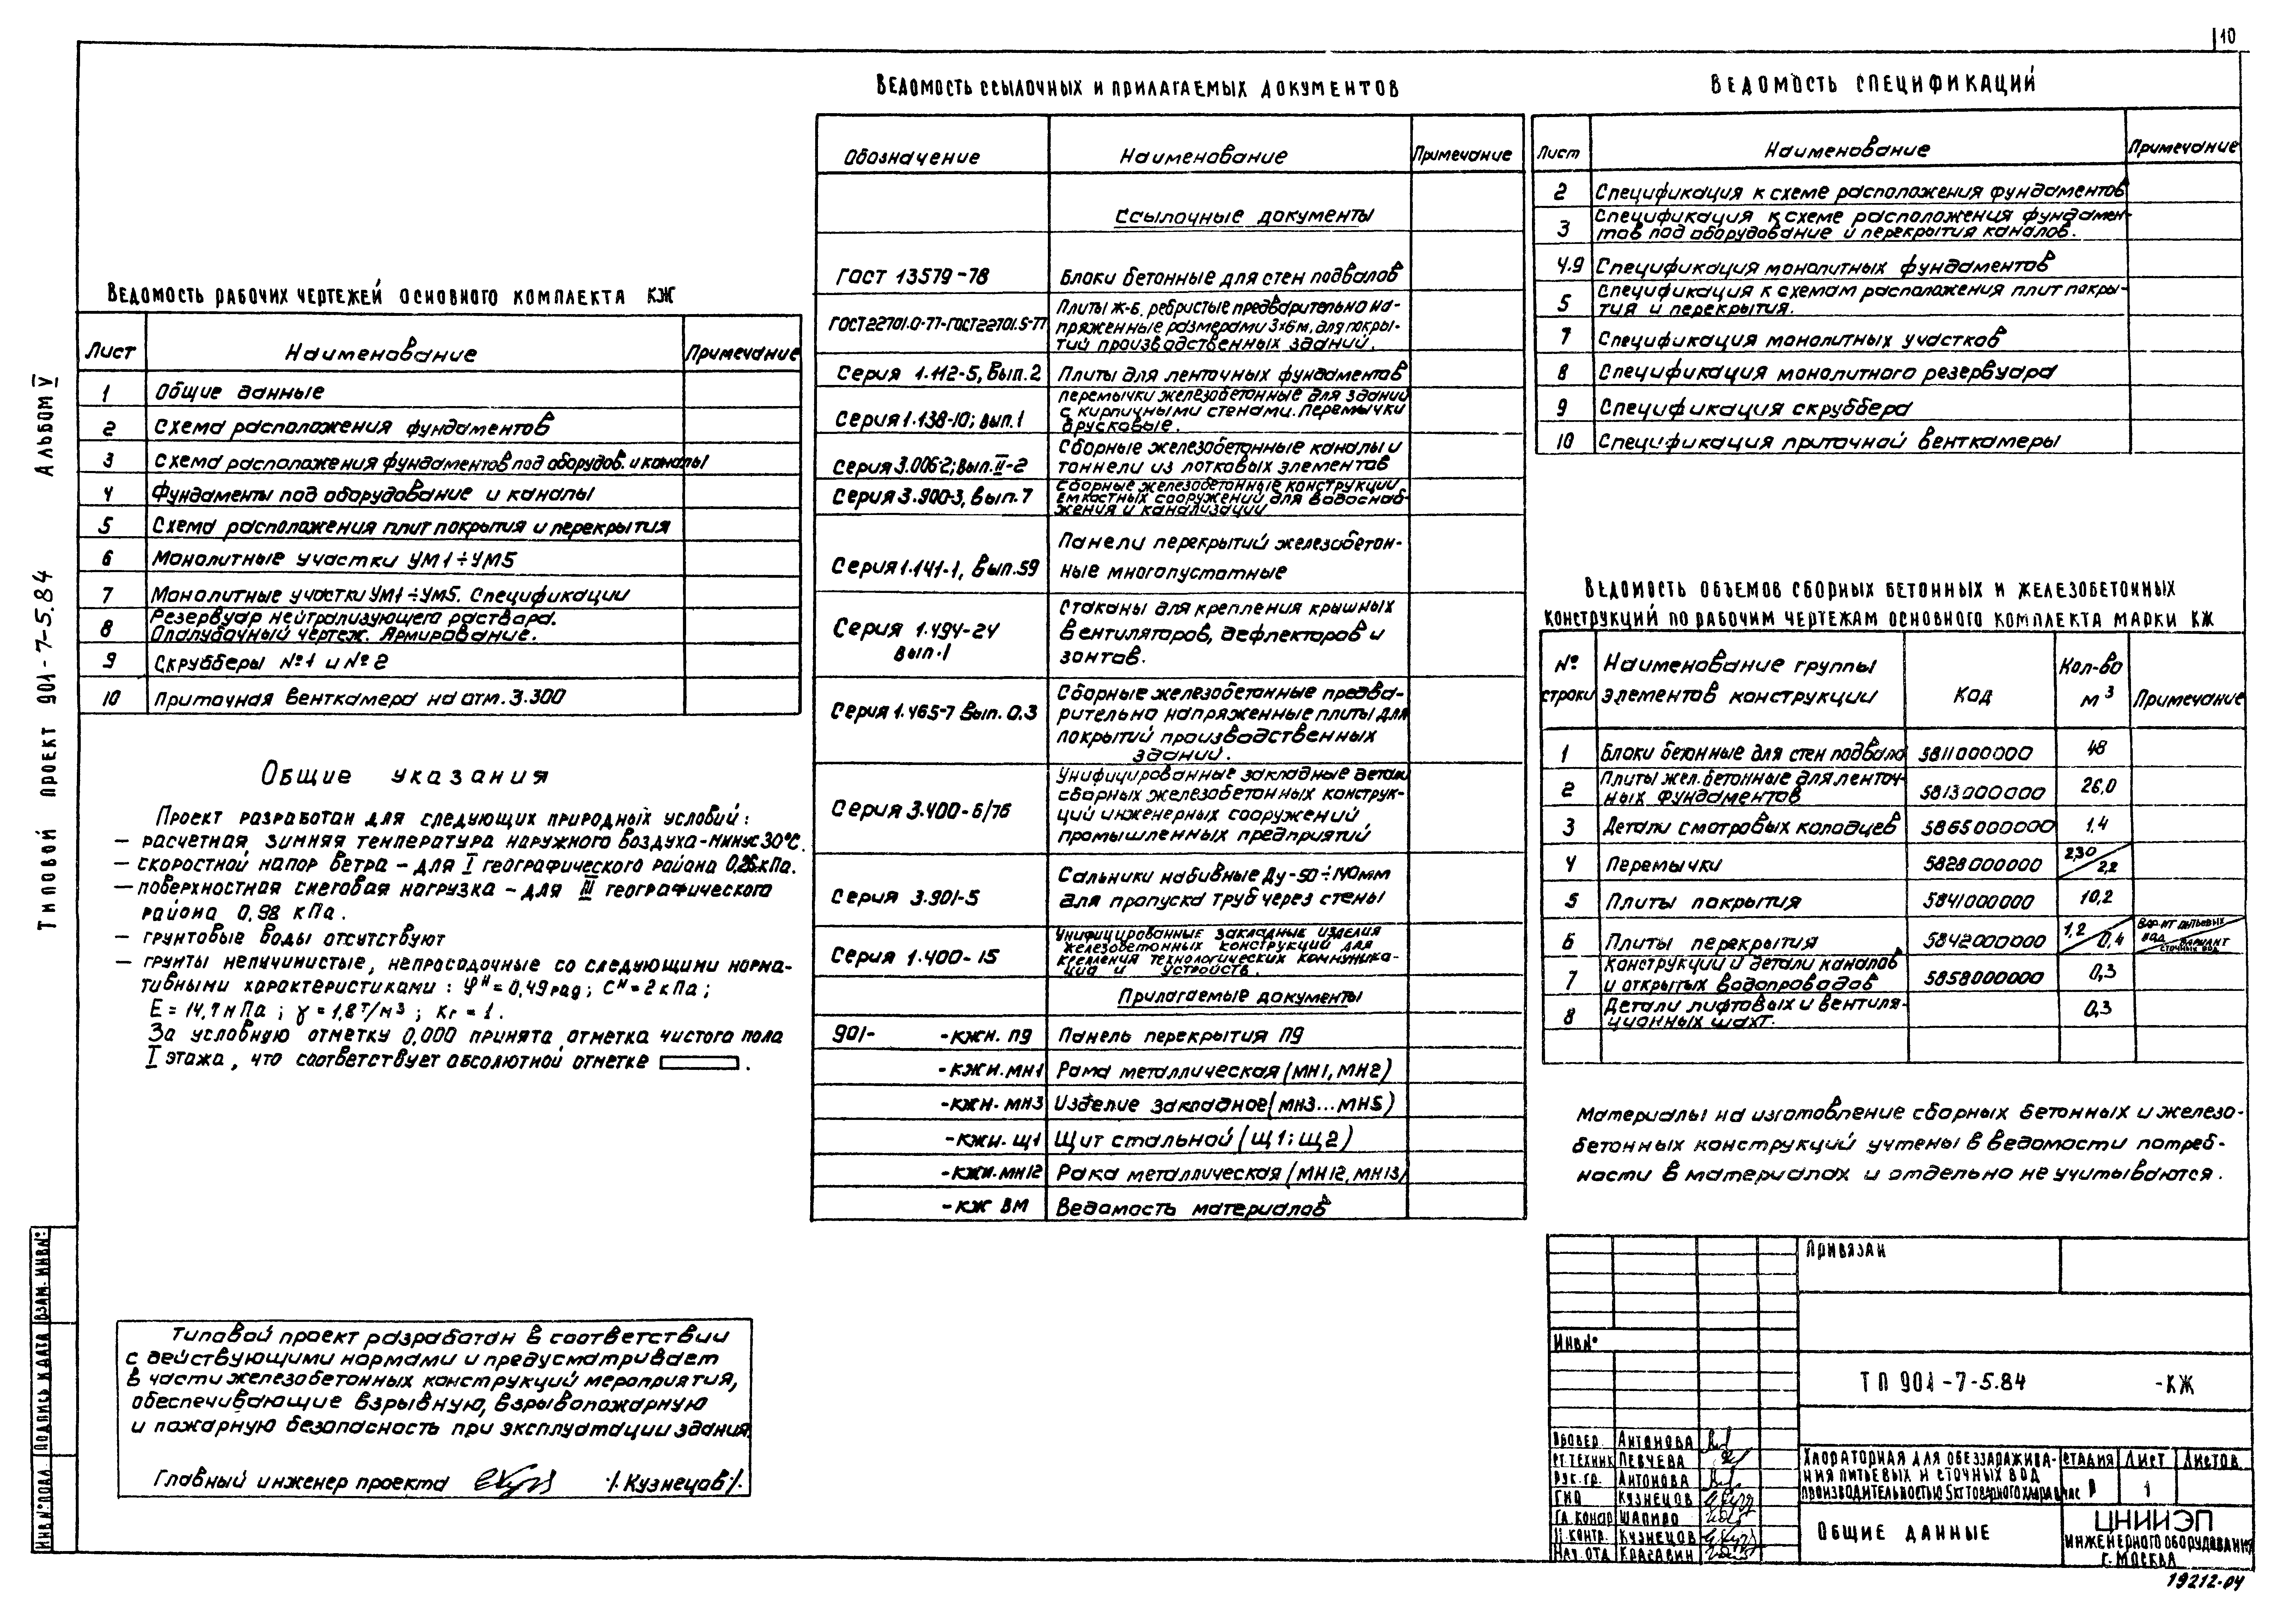 10
Альбом V
Типовой проект 901-7-5.84
Ведомость рабочих чертежей основного комплекта КЖ
Лист Наименование Примечание
1 Общие данные
2 Схема расположения фундаментов
3 Схема расположения фундаментов под оборудов. и каналы
4 Фундаменты под оборудование и каналы
5 Схема расположения плит покрытия и перекрытия
6 Монолитные участки УМ1÷УМ5
7 Монолитные участки УМ1÷УМ5. Спецификации
8 Резервуар нейтрализующего раствора.
Опалубочный чертеж. Армирование.
9 Скрубберы №1 и №2
10 Приточная венткамера на отм. 3.300
Общие указания
Проект разработан для следующих природных условий:
— расчетная зимняя температура наружного воздуха-минус 30°С.
— скоростной напор ветра – для I географического района 0,26кПа.
— поверхностная снеговая нагрузка – для III географического
района 0,98 кПа.
— грунтовые воды отсутствуют
— грунты непучинистые, непросадочные со следующими норма-
тивными характеристиками: φн=0,49рад; Сн=2кПа;
Е=14,7мПа; γ=1,8т/м³; Кг=1.
За условную отметку 0,000 принята отметка чистого пола
I этажа, что соответствует абсолютной отметке .
Типовой проект разработан в соответствии
с действующими нормами и предусматривает
в части железобетонных конструкций мероприятия,
обеспечивающие взрывную, взрывопожарную
и пожарную безопасность при эксплуатации здания.
Главный инженер проекта /Кузнецов/.
Ведомость ссылочных и прилагаемых документов
Обозначение Наименование Примечание
Ссылочные документы
ГОСТ 13579-78 Блоки бетонные для стен подвалов
ГОСТ22701.0-77-ГОСТ22701.5-77 Плиты ж-б. ребристые предварительно на-
пряженные размерами 3х6м, для покры-
тий производственных зданий.
Серия 1.112-5, Вып.2 Плиты для ленточных фундаментов
Серия 1.138-10; вып.1 Перемычки железобетонные для зданий
с кирпичными стенами. Перемычки
брусковые.
Серия 3.006-2; вып.II-2 Сборные железобетонные каналы и
тоннели из лотковых элементов
Серия 3.900-3, вып.7 Сборные железобетонные конструкции
емкостных сооружений для водоснаб-
жения и канализации
Серия 1.141-1, вып.59 Панели перекрытий железобетон-
ные многопустотные
Серия 1.494-24
вып.1 Стаканы для крепления крышных
вентиляторов, дефлекторов и
зонтов.
Серия 1.465-7 Вып. 0.3 Сборные железобетонные предва-
рительно напряженные плиты для
покрытий производственных
зданий.
Серия 3.400-6/76 Унифицированные закладные детали
сборных железобетонных конструк-
ций инженерных сооружений
промышленных предприятий
Серия 3.901-5 Сальники набивные Ду-50÷140мм
для пропуска труб через стены
Серия 1.400-15 Унифицированные закладные изделия
железобетонных конструкций для
крепления технологических коммуника-
ций и устройств.
Прилагаемые документы
901- -КЖИ. П9 Панель перекрытия П9
-КЖИ. МН1 Рама металлическая (МН1, МН2)
-КЖИ. МН3 Изделие закладное (МН3...МН5)
-КЖИ. Щ1 Щит стальной (Щ1; Щ2)
-КЖИ. МН12 Рама металлическая (МН12, МН13)
-КЖ ВМ Ведомость материалов
Ведомость спецификаций
Лист Наименование Примечание
2 Спецификация к схеме расположения фундаментов
3 Спецификация к схеме расположения фундамен-
тов под оборудование и перекрытия каналов.
4.9 Спецификация монолитных фундаментов
5 Спецификация к схемам расположения плит покры-
тия и перекрытия.
7 Спецификация монолитных участков
8 Спецификация монолитного резервуара
9 Спецификация скруббера
10 Спецификация приточной венткамеры
Ведомость объемов сборных бетонных и железобетонных
конструкций по рабочим чертежам основного комплекта марки КЖ
№ строки Наименование группы элементов конструкции Код Кол-во м³ Примечание
1 Блоки бетонные для стен подвала 5811000000 48
2 Плиты жел. бетонные для ленточ-
ных фундаментов 5813000000 26,0
3 Детали смотровых колодцев 5865000000 1.4
4 Перемычки 5828000000 2,30/2,2
5 Плиты покрытия 5841000000 10,2
6 Плиты перекрытия 5842000000 1,2/0,4 Вар-нт питьевых вод/Вариант сточных вод
7 Конструкции и детали каналов
и открытых водопроводов 5858000000 0,3
8 Детали лифтовых и вентиля-
ционных шахт. 0,3
Материалы на изготовление сборных бетонных и железо-
бетонных конструкций учтены в ведомости потреб-
ности в материалах и отдельно не учитываются.
Привязан
Инв№
ТП 901-7-5.84 -КЖ
Провер. Антонова
Ст.техник Певчева
Рук. гр. Антонова
ГИП Кузнецов
Гл. констр Шапиро
Н.контр. Кузнецов
Нач. отд Красавин
Хлораторная для обеззаражива-
ния питьевых и сточных вод
производительностью 5кг товарного хлора в час
Стадия Лист Листов
Р 1
Общие данные
ЦНИИЭП
инженерного оборудования
г. Москва
19212-04
Инв№подл. Подпись и дата Взам. инв№